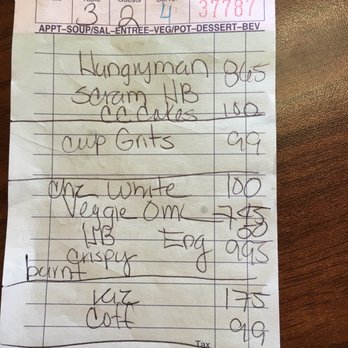 3 2 4 37787
APPT-SOUP/SAL-ENTREE-VEG/POT-DESSERT-BEV
Hungryman 865
scram HB
CC Cakes 100
cup Grits 99
chz White 100
Veggie Ome
HB Eng
crispy 995
burnt
175
Coff 99
Tax